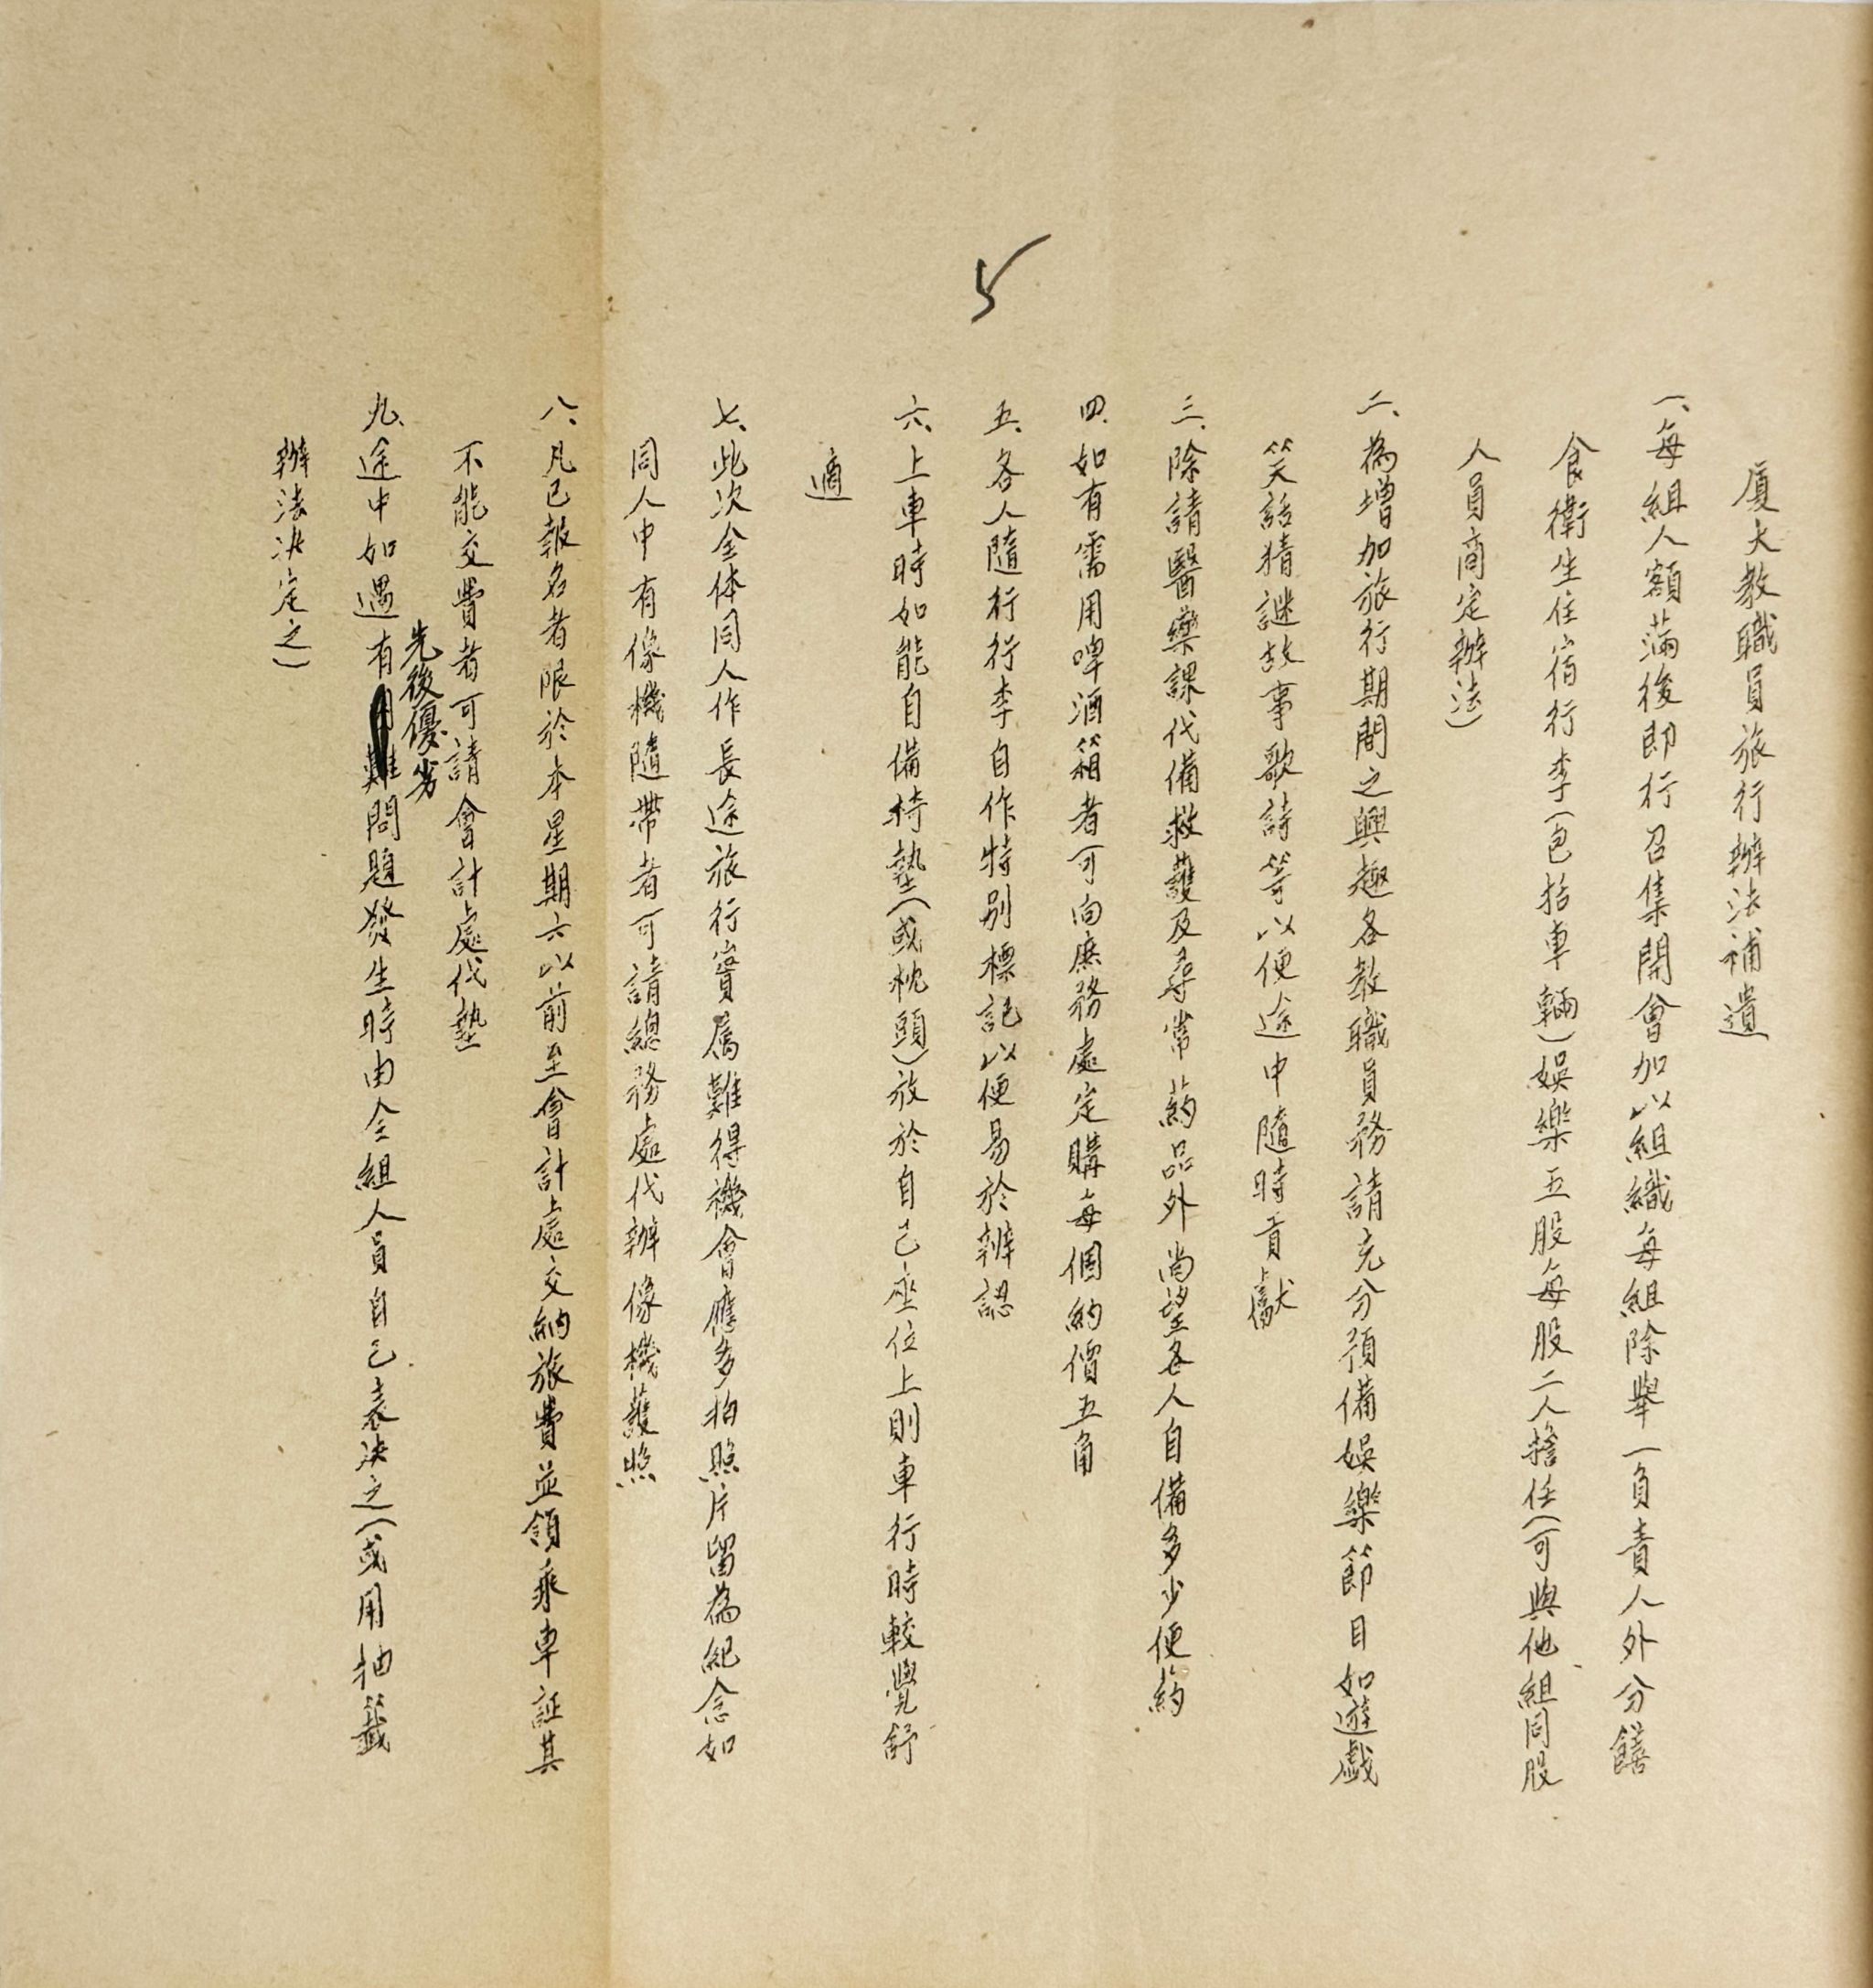 5
厦大教職員旅行辦法補遺
一、每組人額滿後即行召集開會加以組織每組除舉一負責人外分饍
食衛生住宿行李(包括車輛)娛樂五股每股二人擔任(可與他組同股
人員商定辦法)
二、為增加旅行期間之興趣各教職員務請充分預備娛樂節目如遊戲
笑話猜謎故事歌詩等以便途中隨時貢獻
三、除請醫藥課代備救護及尋常葯品外尚望各人自備多少便葯
四、如有需用啤酒箱者可向庶務處定購每個約價五角
五、各人隨行行李自作特别標記以便易於辨認
六、上車時如能自備椅墊(或枕頭)放於自己座位上則車行時較覺舒
適
七、此次全体同人作長途旅行實属難得機會應多拍照片留為紀念如
同人中有像機隨帶者可請總務處代辦像機護照
八、凡已報名者限於本星期六以前至會計處交納旅費並領乘車証其
不能交費者可請會計處代墊
先後優劣
九、途中如遇有問題發生時由全組人員自己表决之(或用抽籤
辦法决定之)